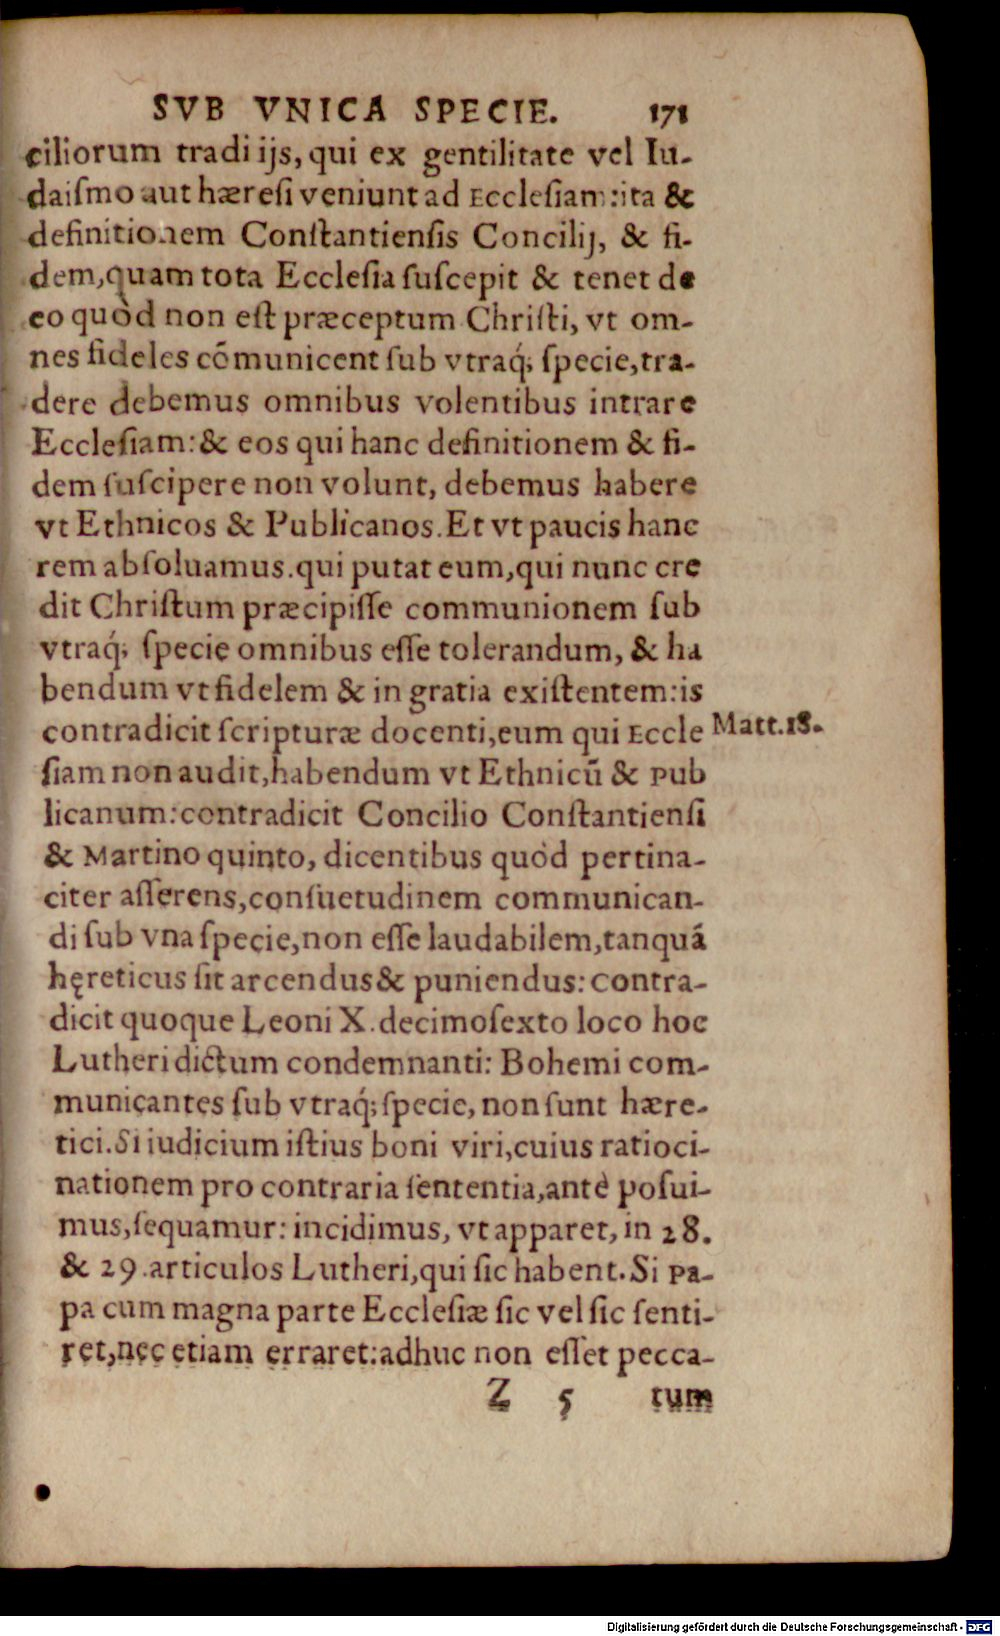 SVB VNICA SPECIE. 171
ciliorum tradi ijs, qui ex gentilitate vel Iu-
daiſmo aut hæreſi veniunt ad Eccleſiam: ita &
definitionem Conſtantienſis Concilij, & fi-
dem, quam tota Eccleſia ſuſcepit & tenet de
eo quòd non eſt præceptum Chriſti, vt om-
nes fideles cōmunicent ſub vtraq́; ſpecie, tra-
dere debemus omnibus volentibus intrare
Eccleſiam: & eos qui hanc definitionem & fi-
dem ſuſcipere non volunt, debemus habere
vt Ethnicos & Publicanos. Et vt paucis hanc
rem abſoluamus. qui putat eum, qui nunc cre
dit Chriſtum præcipiſſe communionem ſub
vtraq́; ſpecie omnibus eſſe tolerandum, & ha
bendum vt fidelem & in gratia exiſtentem: is
contradicit ſcripturæ docenti, eum qui Eccle
Matt. 18.
ſiam non audit, habendum vt Ethnicū & Pub
licanum: contradicit Concilio Conſtantienſi
& Martino quinto, dicentibus quòd pertina-
citer aſſerens, conſuetudinem communican-
di ſub vna ſpecie, non eſſe laudabilem, tanquā
hęreticus ſit arcendus & puniendus: contra-
dicit quoque Leoni X. decimoſexto loco hoc
Lutheri dictum condemnanti: Bohemi com-
municantes ſub vtraq́; ſpecie, non ſunt hære-
tici. Si iudicium iſtius boni viri, cuius ratioci-
nationem pro contraria ſententia, antè poſui-
mus, ſequamur: incidimus, vt apparet, in 28.
& 29. articulos Lutheri, qui ſic habent. Si Pa-
pa cum magna parte Eccleſiæ ſic vel ſic ſenti-
ret, nec etiam erraret: adhuc non eſſet pecca-
Z 5 tum
Digitalisierung gefördert durch die Deutsche Forschungsgemeinschaft - DFG